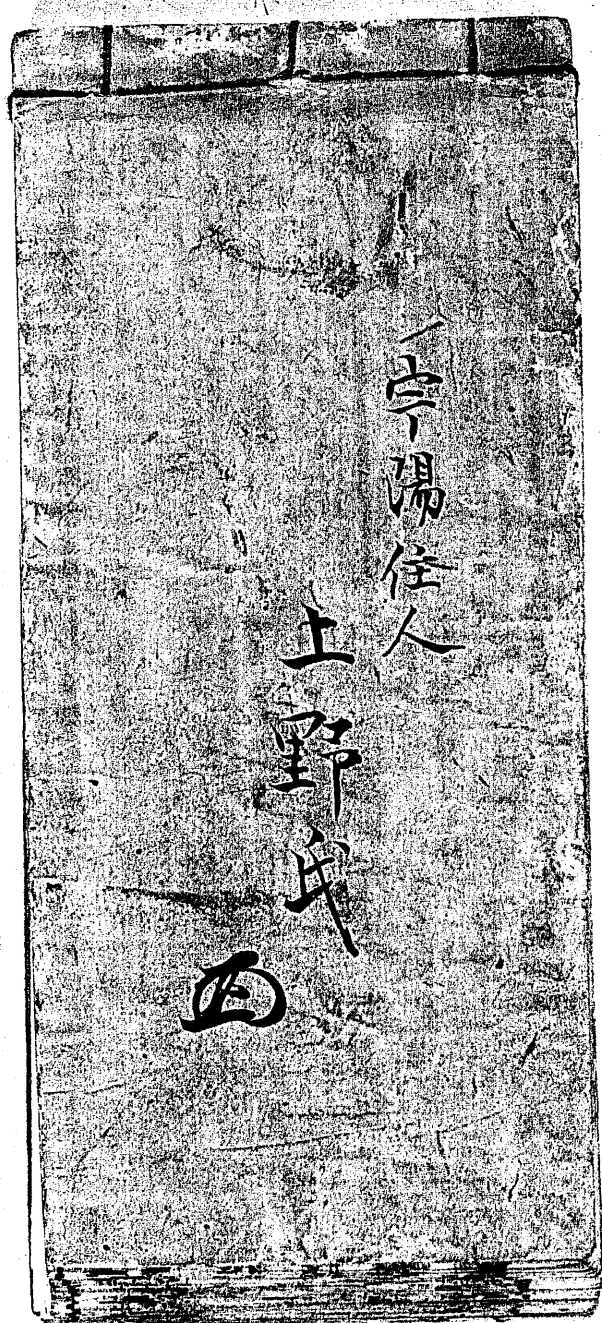 宇陽住人
上野氏